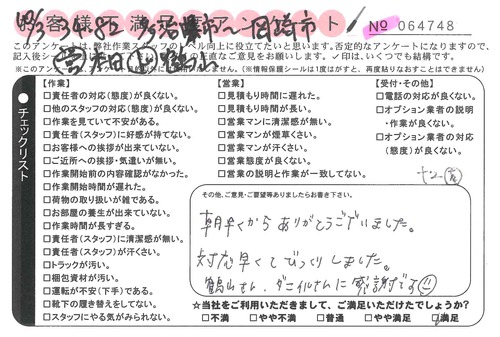 お客様満足アンケート
№ 064748
このアンケートは、弊社作業スタッフのレベル向上に役立てたいと思います。否定的なアンケートになりますので、
✓印は、いくつでも結構です。
(※情報保護シールは1度はがすと、再度貼りなおすことはできません)
チェックリスト
【作業】
□責任者の対応(態度)が良くない。
□他のスタッフの対応(態度)が良くない。
□作業を見ていて不安がある。
□責任者(スタッフ)に好感が持てない。
□お客様への挨拶が出来ていない。
□ご近所への挨拶・気遣いが無い。
□作業開始前の内容確認がなかった。
□作業開始時間が遅れた。
□荷物の取り扱いが雑である。
□お部屋の養生が出来ていない。
□作業時間が長すぎる。
□責任者(スタッフ)に清潔感が無い。
□責任者(スタッフ)が汗くさい。
□トラックが汚い。
□梱包資材が汚い。
□運転が不安(下手)である。
□靴下の履き替えをしてない。
□スタッフにやる気がみられない。
【営業】
□見積もり時間に遅れた。
□見積もり時間が長い。
□営業マンに清潔感が無い。
□営業マンが煙草くさい。
□営業マンが汗くさい。
□営業態度が良くない。
□営業の説明と作業が一致してない。
【受付・その他】
□電話の対応が良くない。
□オプション業者の説明
・作業が良くない。
□オプション業者の対応
(態度)が良くない。
その他、ご意見・ご要望等ありましたらお書き下さい。
朝早くからありがとうございました。
対応早くてびっくりしました。
鶴山さん、ダニイルさんに感謝です
☆当社をご利用いただきまして、ご満足いただけたでしょうか?
□不満 □やや不満 □普通 □やや満足 □満足